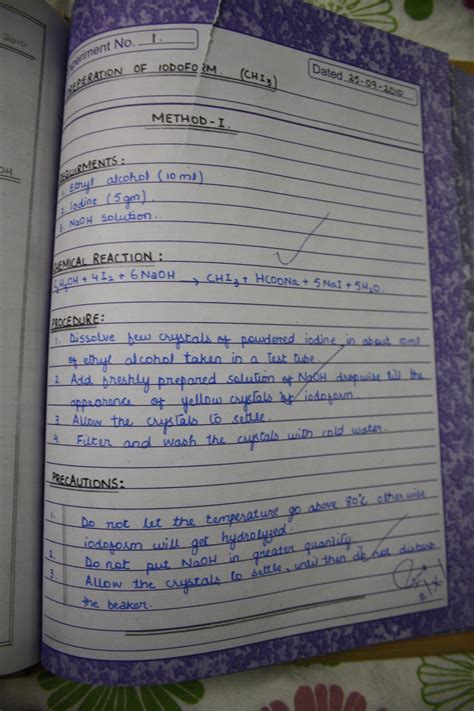 2010
OH
Experiment No. 1.
PREPERATION OF IODOFORM. (CHI3)
Dated 25-09-2010
METHOD-I.
REQUIRMENTS:
1. Ethyl alcohol (10ml)
2. Iodine (5gm).
3. NaOH Solution.
CHEMICAL REACTION:
C2H5OH + 4I2 + 6NaOH → CHI3 + HCOONa + 5NaI + 5H2O.
PROCEDURE:
1. Dissolve few crystals of powdered iodine in about 10ml
of ethyl alcohol taken in a test tube.
2. Add freshly prepared solution of NaOH dropwise till the
apperance of yellow crystals of iodoform
3 Allow the crystals to settle.
4. Filter and wash the crystals with cold water.
PRECAUTIONS:
1. Do not let the temperature go above 80°C otherwise
iodoform will get hydrolyzed.
2. Do not put NaOH in greater quantity.
3. Allow the crystals to settle, until then do not disturb
the beaker.